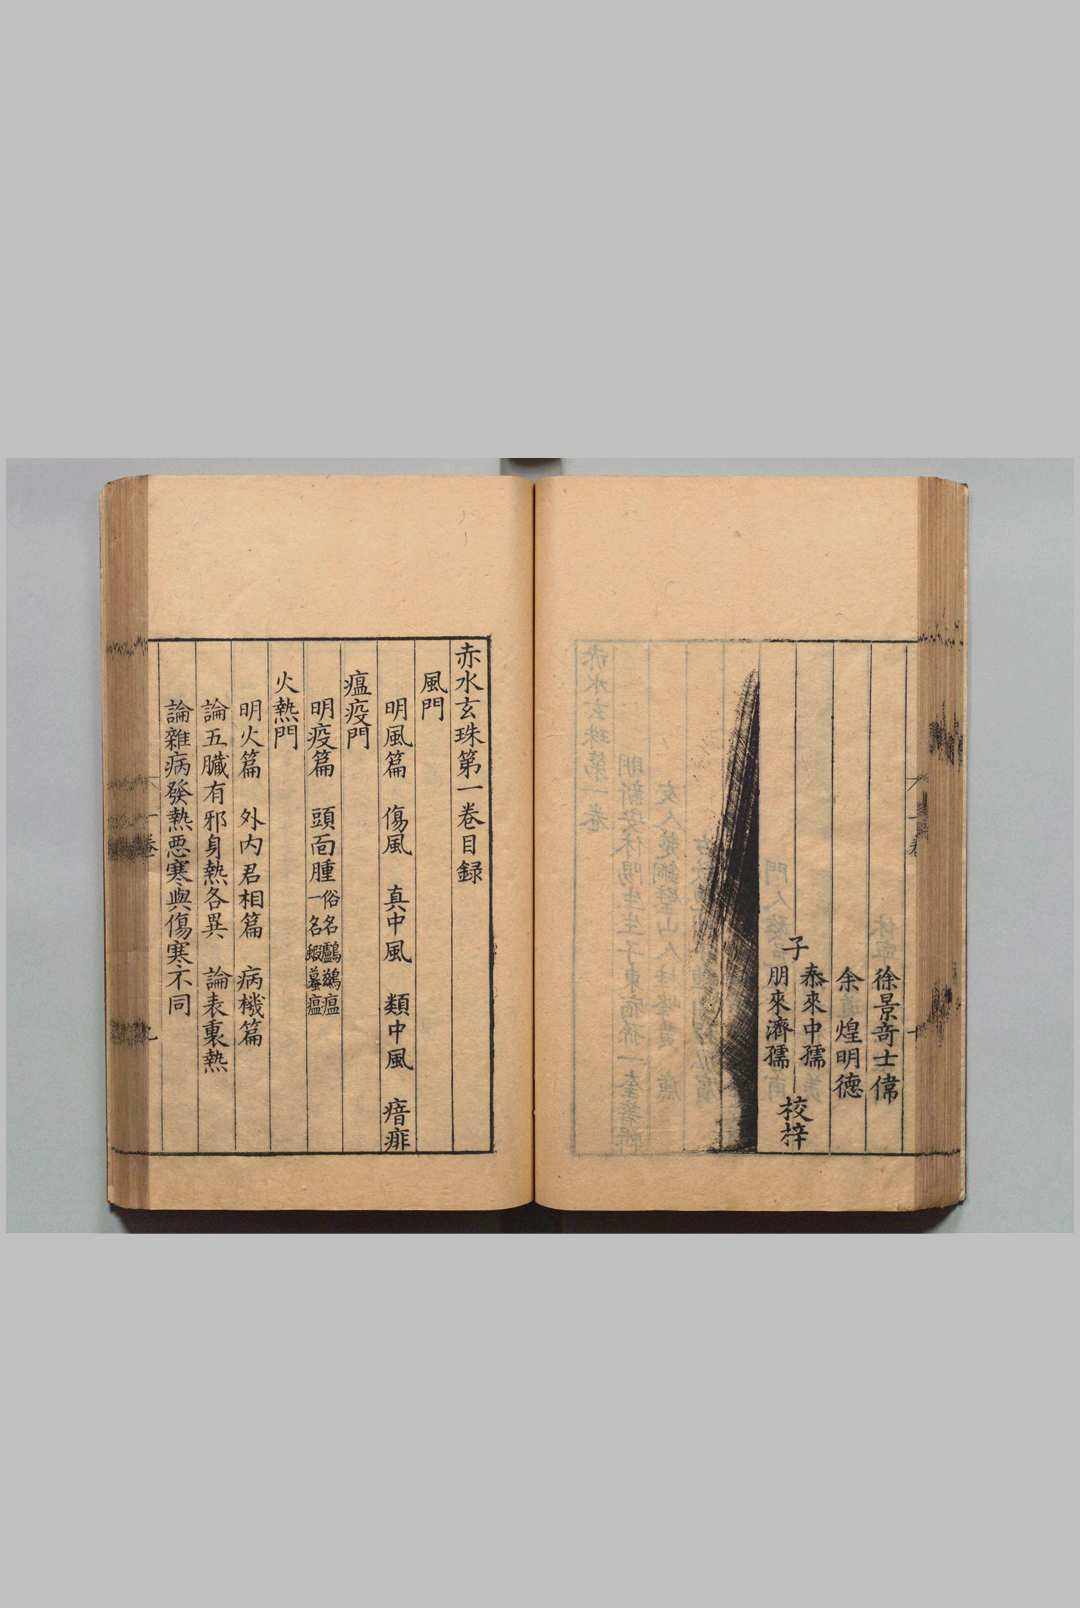 徐景奇士偉
余煌明德
子
泰來中孺
朋來濟孺
校梓
赤水玄珠第一卷目録
風門
明風篇 傷風 真中風 類中風 瘖痱
瘟疫門
明疫篇 頭面腫 俗名鸕鷀瘟 一名蝦蟇瘟
火熱門
明火篇 外内君相篇 病機篇
論五臟有邪身熱各異 論表裏熱
論雜病發熱惡寒與傷寒不同
一卷